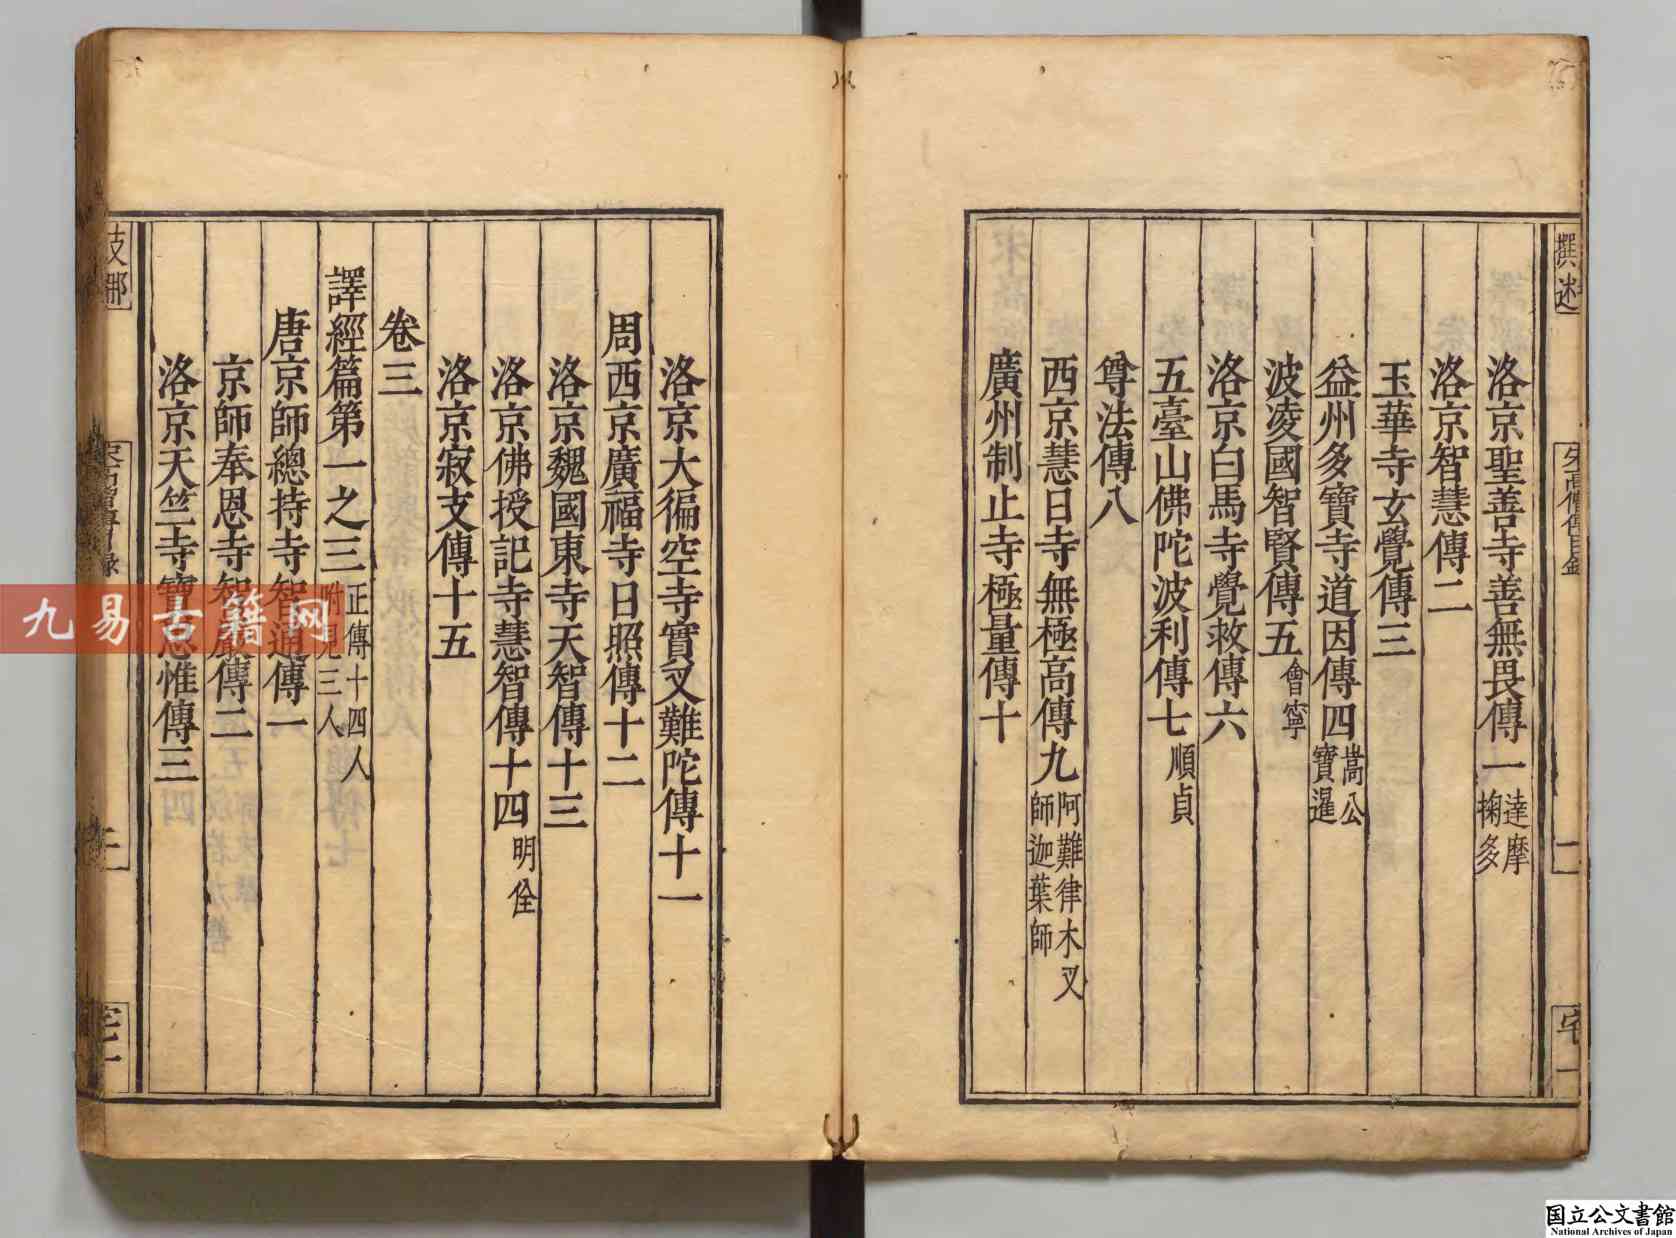 撰述
宋高僧傳目錄
二
宅一
洛京聖善寺善無畏傳一達摩掬多
洛京智慧傳二
玉華寺玄覺傳三
益州多寶寺道因傳四嵩公寶暹
波凌國智賢傳五會寧
洛京白馬寺覺救傳六
五臺山佛陀波利傳七順貞
尊法傳八
西京慧日寺無極高傳九阿難律木叉師迦葉師
廣州制止寺極量傳十
洛京大徧空寺實叉難陀傳十一
周西京廣福寺日照傳十二
洛京魏國東寺天智傳十三
洛京佛授記寺慧智傳十四明佺
洛京寂支傳十五
卷三
譯經篇第一之三正傳十四人附見三人
唐京師總持寺智通傳一
京師奉恩寺智嚴傳二
洛京天竺寺寶思惟傳三
支那
宅一
九易古籍网
国立公文書館
National Archives of Japan